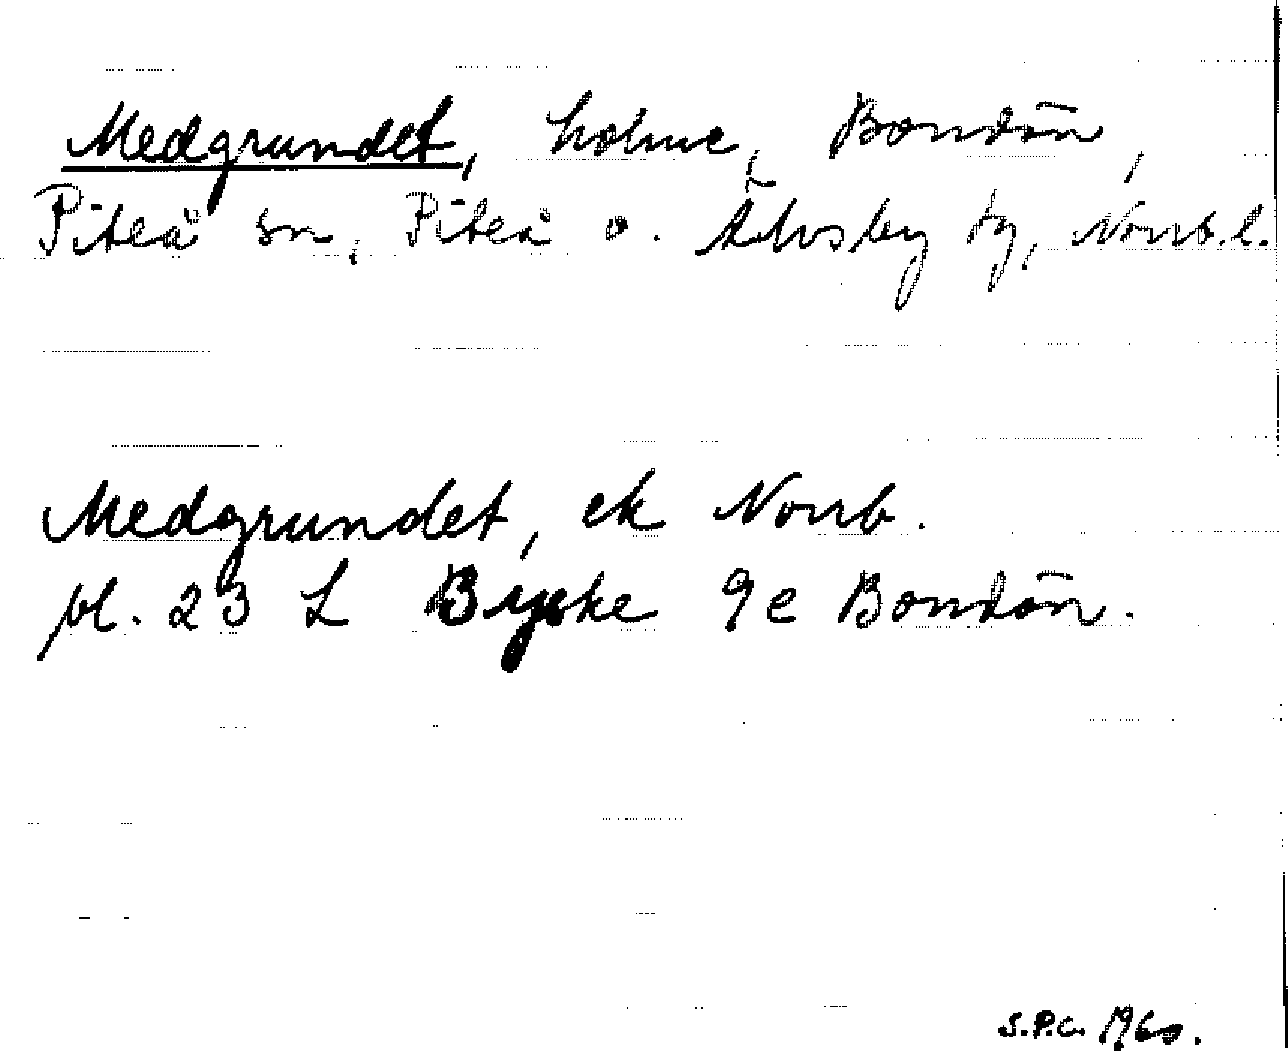 Medgrundet, holme, Bondön,
Piteå sn, Piteå o. Älvsby tg, Norrb.l.
Medgrundet, ek Norrb.
bl. 23 L Byske 9e Bondön.
S.P.C. 1960.